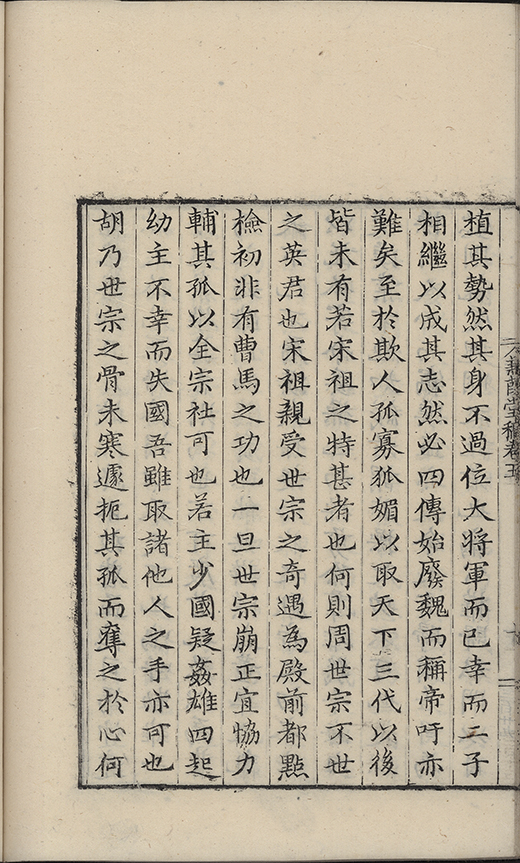 植其勢然其身不過位大將軍而已幸而二子
相繼以成其志然必四傳始廢魏而稱帝吁亦
難矣至於欺人孤寡狐媚以取天下三代以後
皆未有若宋祖之特甚者也何則周世宗不世
之英君也宋祖親受世宗之奇遇為殿前都㸃
檢初非有曹馬之功也一旦世宗崩正宜恊力
輔其孤以全宗社可也若主少國疑姦雄四起
幼主不幸而失國吾雖取諸他人之手亦可也
胡乃世宗之骨未寒遽扼其孤而奪之於心何